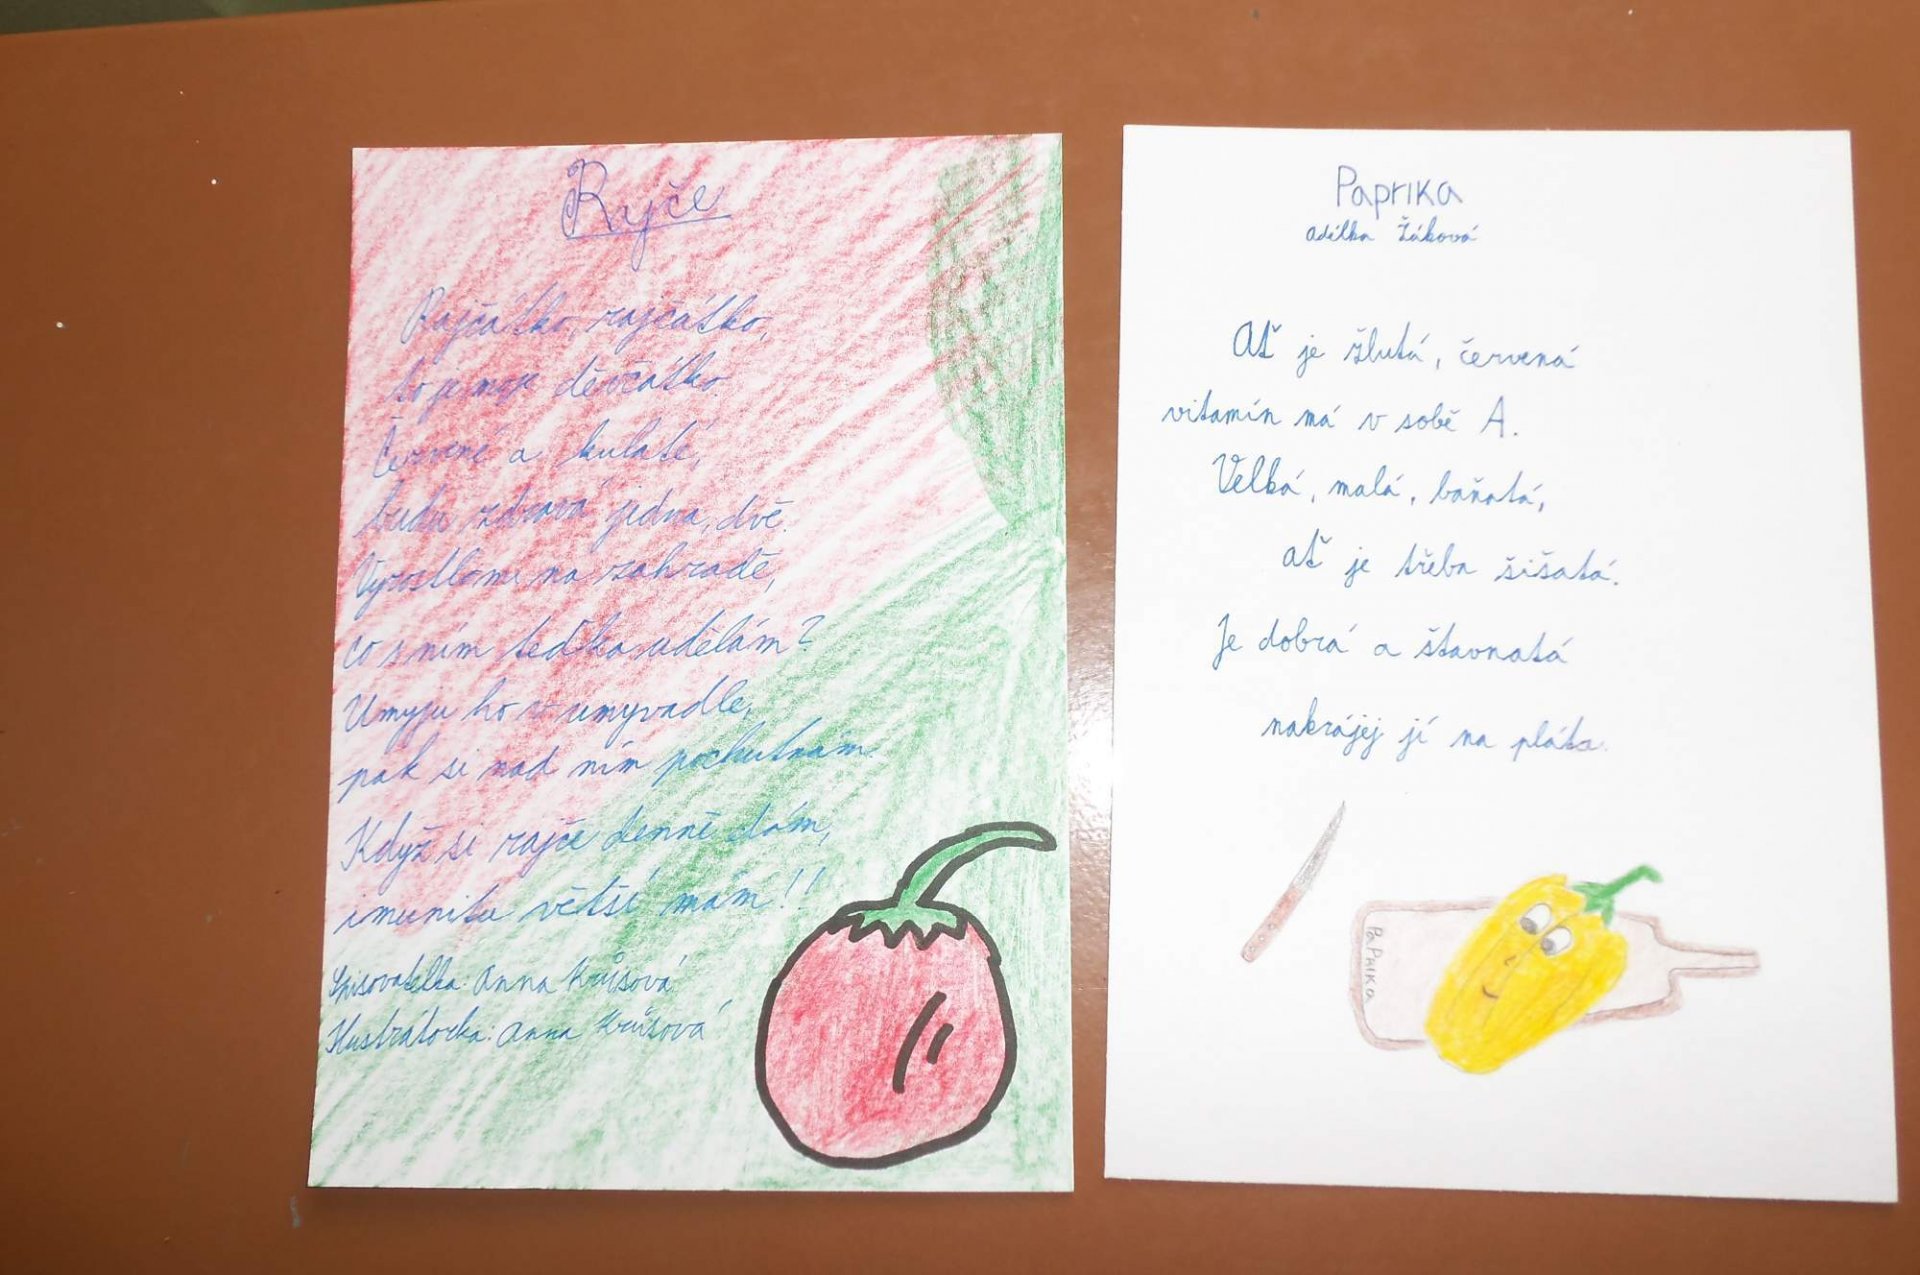 Rajče
Rajčátko, rajčátko,
to je moje děvčátko.
Červené a kulaté,
budu zdravá jedna, dvě.
Vyrostlo mi na zahradě,
co s ním teďka udělám?
Umyju ho v umyvadle,
pak si nad ním pochutnám.
Když si rajče denně dám,
imunitu větší mám!!
Spisovatelka: Anna
Ilustrátorka: Anna
Paprika
Adélka Žáková
Ať je žlutá, červená
vitamín má v sobě A.
Velká, malá, baňatá,
ať je třeba šišatá.
Je dobrá a šťavnatá
nakrájej jí na pláta.
PAPRIKA